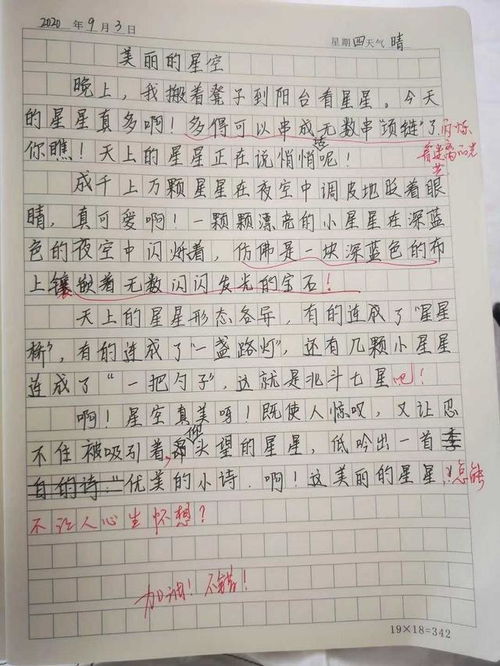 2020 年 9 月 3 日 星期 四 天气 晴
美丽的星空
晚上，我搬着凳子到阳台看星星。今天
的星星真多啊！多得可以串成无数串项链了
你瞧！天上的星星正在说悄悄话呢！
成千上万颗星星在夜空中调皮地眨着眼
睛，真可爱啊！一颗颗漂亮的小星星在深蓝
色的夜空中闪烁着，仿佛是一块深蓝色的布
上镶嵌着无数闪闪发光的宝石！
天上的星星形态各异，有的连成了"星星
桥"，有的连成了"一盏路灯"，还有几颗小星星
连成了"一把勺子"，这就是北斗七星吧！
啊！星空真美呀！既使人惊叹，又让忍
不住被吸引着，仰头望的星星，低吟出一首
自的诗："优美的小诗．啊！这美丽的星星，怎能
不让人心生怀想？
加油！不错！
19×18=342